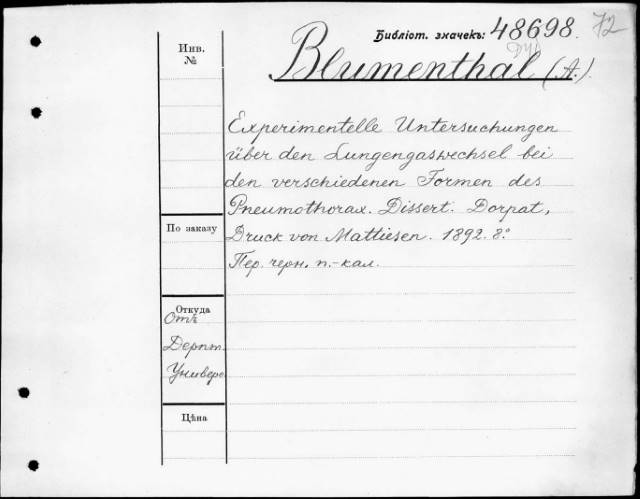 Библіот. значекъ: 48698. 72
Инв.
№
Blumenthal (A.).
Experimentelle Untersuchungen
über den Lungengaswechsel bei
den verschiedenen Formen des
Pneumothorax. Dissert. Dorpat,
По заказу
Druck von Mattiesen. 1892. 8°
Пер. черн. п.-кал.
Откуда
Отъ
Дерпт.
Универс
Цѣна